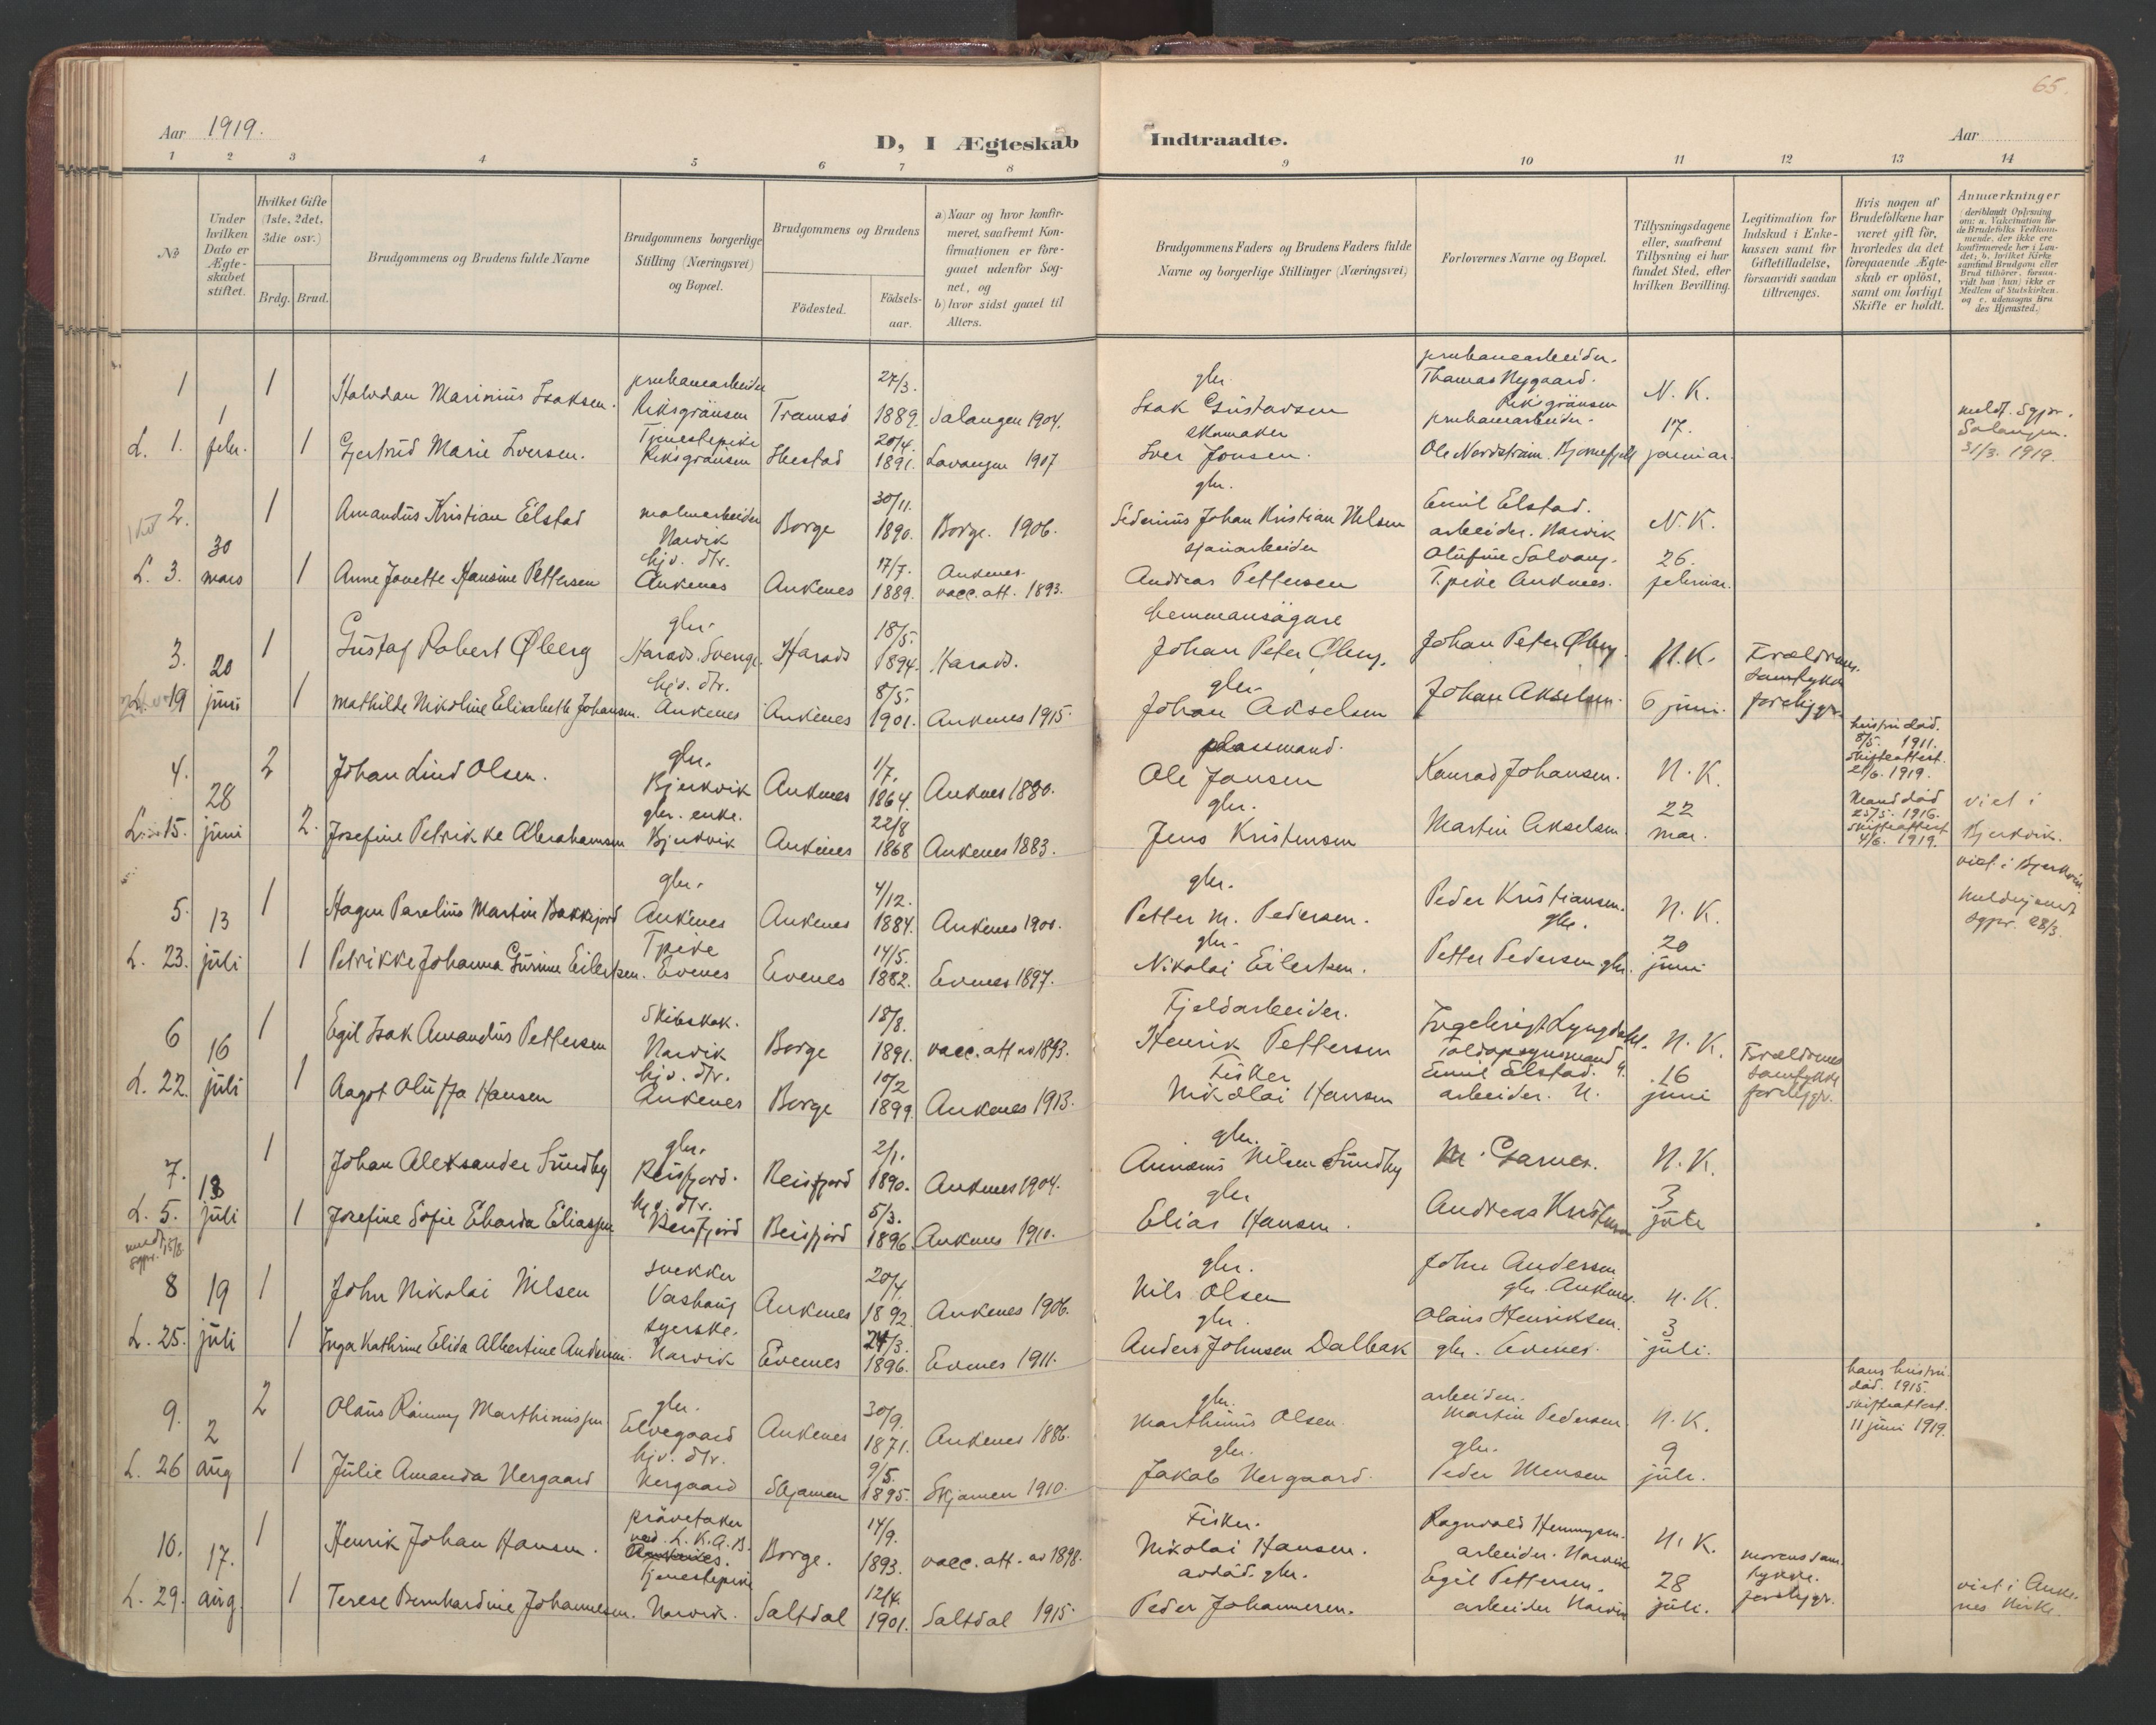 65.
Aar 1919.
D, I Ægteskab Indtraadte.
Aar
1 2 3 4 5 6 7 8 9 10 11 12 13 14
No
Under hvilken Dato er Ægteskabet stiftet.
Hvilket Gifte (1ste, 2det, 3die osv.)
Brdg. Brud.
Brudgommens og Brudens fulde Navne
Brudgommens borgerlige Stilling (Næringsvei) og Bopæl.
Brudgommens og Brudens
Födested.
Födselsaar.
a) Naar og hvor konfirmeret, saafremt Konfirmationen er foregaaet udenfor Sognet, og
b) hvor sidst gaaet til Alters.
Brudgommens Faders og Brudens Faders fulde Navne og borgerlige Stillinger (Næringsvei)
Forlovernes Navne og Bopæl.
Tillysningsdagene eller, saafremt Tillysning ei har fundet Sted, efter hvilken Bevilling.
Legitimation for Indskud i Enkekassen samt for Giftetilladelse, forsaavidt saadan tiltrænges.
Hvis nogen af Brudefolkene har været gift för, hvorledes da det foregaaende Ægteskab er oplöst, samt om lovligt Skifte er holdt.
Anmærkninger
(deriblandt Oplysning om: a. Vakcination for de Brudefolks Vedkommende, der ikke ere konfirmerede her i Landet; b. hvilket Kirkesamfund Brudgom eller Brud tilhörer, forsaavidt han (hun) ikke er Medlem af Statskirken, og c. udensogns Brudes Hjemsted.)
1 1 Halvdan Marinius Isaksen. Riksgränsen Tromsö 27/3. 1889. Salangen 1904. gbr. Isak Gustavsen Thomas Nygaard. Riksgränsen N. K.
L. 1. 1 febr. 1 Gjertrud Marie Iversen. Tjenestepike Riksgränsen Ibestad 20/4. 1891. Lavangen 1907 skomaker Iver Jonsen. Ole Nordström. Bjørnefjell 17. januar. meldt. Sgpr. Salangen. 31/3. 1919.
2. 1 Amandus Kristian Elstad malmarbeider Narvik Borge 30/11. 1890. Borge. 1906. gbr. Sidenius Johan Kristian Nilsen Emil Elstad. arbeider. Narvik N. K.
L. 3. 30 mars 1 Anne Jonette Hansine Pettersen hjv. dtr. Ankenes Ankenes 17/7. 1889. Ankenes. vacc. att. 1893. sjauarbeider Andreas Pettersen Olufine Solvang. T.pike Ankenes. 26. februar.
3. 1 Gustaf Robert Øberg gbr. Harads. Sverige. Harads 18/5. 1894. Harads. hemmansägare Johan Peter Øberg. Johan Peter Øberg. N. K. Forældrenes
L. 19 20 juni 1 Mathilde Nikoline Elisabeth Johansen. hjv. dtr. Ankenes Ankenes 8/5. 1901. Ankenes 1915. gbr. Johan Akselsen Johan Akselsen. 6 juni. samtykke foreligger.
4. 2 Johan Lind Olsen. gbr. Bjerkvik Ankenes 1/7. 1864. Ankenes 1880. plassmand. Ole Jansen Konrad Johansen. N. K. hustru död. 8/5. 1911. Skifteattest. 21/6. 1919.
L. 15. 28 juni 2. Josefine Petrikke Abrahamsen gbr. enke. Bjerkvik Ankenes 22/8 1868 Ankenes 1883. gbr. Jens Kristensen Martin Akselsen 22 mar. Mand död 25/5. 1916. Skifteattest 4/6. 1919. viet i Bjerkvik.
5. 1 Hagen Parelius Martin Bakkejord gbr. Ankenes Ankenes 4/12. 1884. Ankenes 1900. gbr. Petter M. Pedersen. Peder Kristiansen. gbr. N. K. viet i Bjerkvik.
L. 23. 13 juli 1 Petrikke Johanna Gurine Eilertsen. Tpike Evenes Evenes 14/5. 1882. Evenes 1897. gbr. Nikolai Eilertsen. Petter Pedersen gbr. 20 juni sgpr. 28/3.
6 1 Egil Isak Amandus Pettersen Skibskok. Narvik Borge 18/8. 1891. vacc. att. av 1893. Fjeldarbeider. Henrik Pettersen Ingebrigt Lyngdahl. Toldopsynsmand N. K. Forældrenes
L. 22. 16 juli 1 Aagot Oluffa Hansen hjv. dtr. Ankenes Borge 10/2 1899. Ankenes 1913. Fisker Nikolai Hansen Emil Elstad. arbeider. N. 16 juni samtykke foreligger.
7. 1 Johan Aleksander Sundby gbr. Beisfjord. Beisfjord 2/1. 1890. Ankenes 1904. gbr. Nilsen Sundby M. Garnes. N. K.
L. 5. 13 juli 1 Josefine Sofie Edvarda Eliassen hjv. dtr. Beisfjord Beisfjord 5/3. 1896. Ankenes 1910. gbr Elias Hansen. Andreas Kristensen 3 juli
meldt sgpr. 15/8.
8 1 John Nikolai Nilsen snekker Vashaug Ankenes 20/4. 1892. Ankenes 1906. gbr. Nils Olsen John Andersen gbr. Ankenes. N. K.
L. 25. 19 juli 1 Inga Kathrine Elida Albertine Andersen. syerske. Narvik Evenes 24/3. 1896. Evenes 1911. gbr. Anders Johnsen Dalbak Olaus Henriksen. gbr. Evenes. 3 juli.
9. 2 Olaus Rönning Marthinussen gbr. Elvegaard Ankenes 30/9. 1871. Ankenes 1886. gbr. Marthinus Olsen. arbeider. Martin Pedersen N. K. hans hustru död. 1915. skifteattest. 11 juni 1919.
L. 26 2 aug 1 Julie Amanda Nergaard hjv. dtr. Nergaard Skjomen 9/5. 1895. Skjomen 1910. gbr. Jakob Nergaard. gbr. Peder Monsen 9 juli.
10. 1 Henrik Johan Hansen. prövetaker ved L. K. A. B. Ankenes. Borge. 14/9. 1893. vacc. att. av 1898. Fisker. Nikolai Hansen. Ragnvald Henningsen. arbeider. Narvik N. K. morens sam-
L. 29. 17. aug. 1 Terese Bernhardine Johannesen. Tjenestepike Narvik. Saltdal 12/4. 1901. Saltdal 1915. avdöd. gbr. Peder Johannesen. Egil Pettersen. arbeider Narvik 28 juli. tykke. foreligger. viet i Ankenes Kirke.